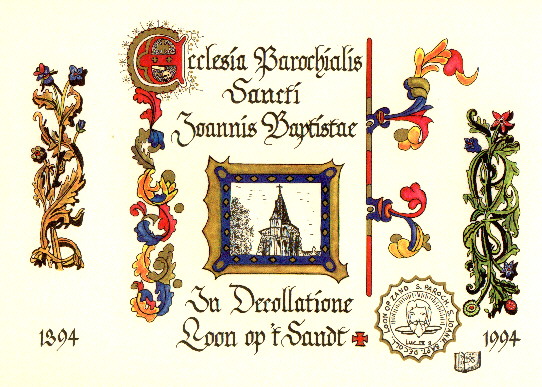 Ecclesia Parochialis
Sancti
Joannis Baptistae
In Decollatione
Loon op 't Sandt
1394
1994